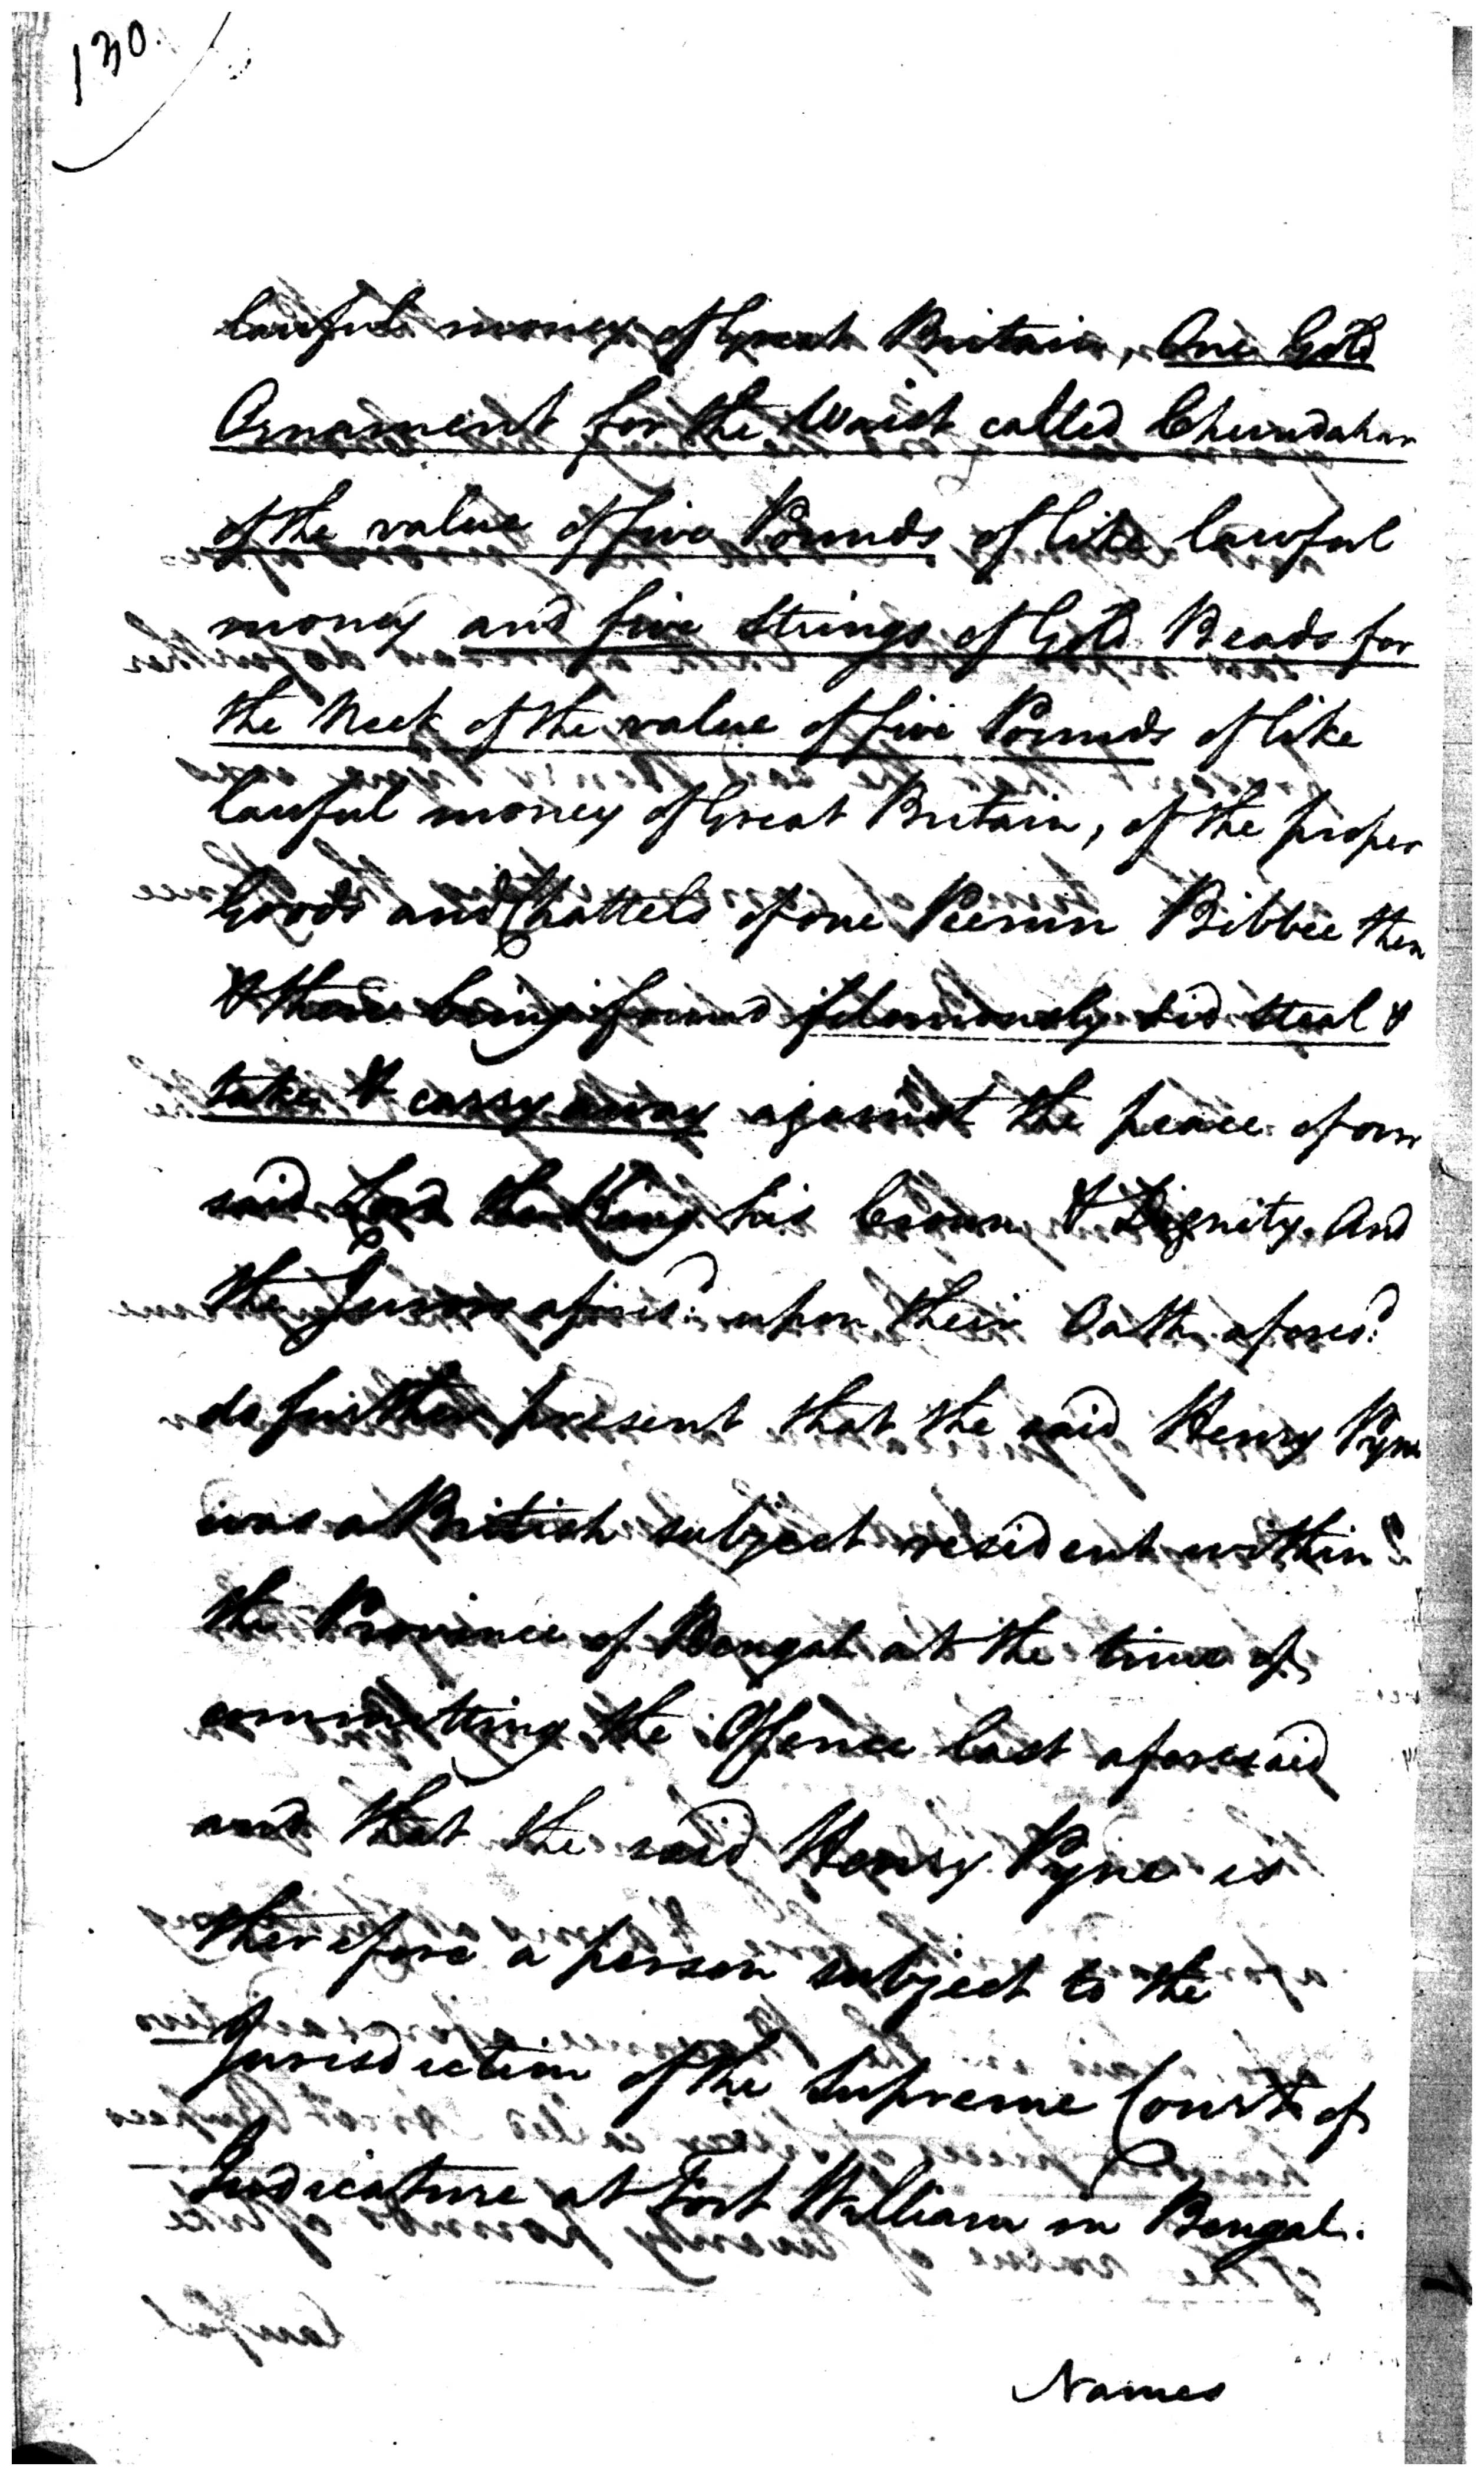 130.
lawful money of Great Britain, One Gold
Ornament for the Waist called Chundahar
of the value of five Pounds of like lawful
money and five Strings of Gold Beads for
the Neck of the value of five Pounds of like
lawful money of Great Britain, of the proper
Goods and Chattels of one Peerun Bibbee then
& there being found feloniously did steal &
take & carry away against the peace of our
said Lord the King his Crown & Dignity. And
the Jurors afores:d upon their Oath afores:d
do further present that the said Henry Pyne
was a British subject resident within
the Province of Bengal at the time of
committing the Offence last aforesaid
and that the said Henry Pyne is
therefore a person subject to the
Jurisdiction of the Supreme Court of
Judicature at Fort William in Bengal.
Names